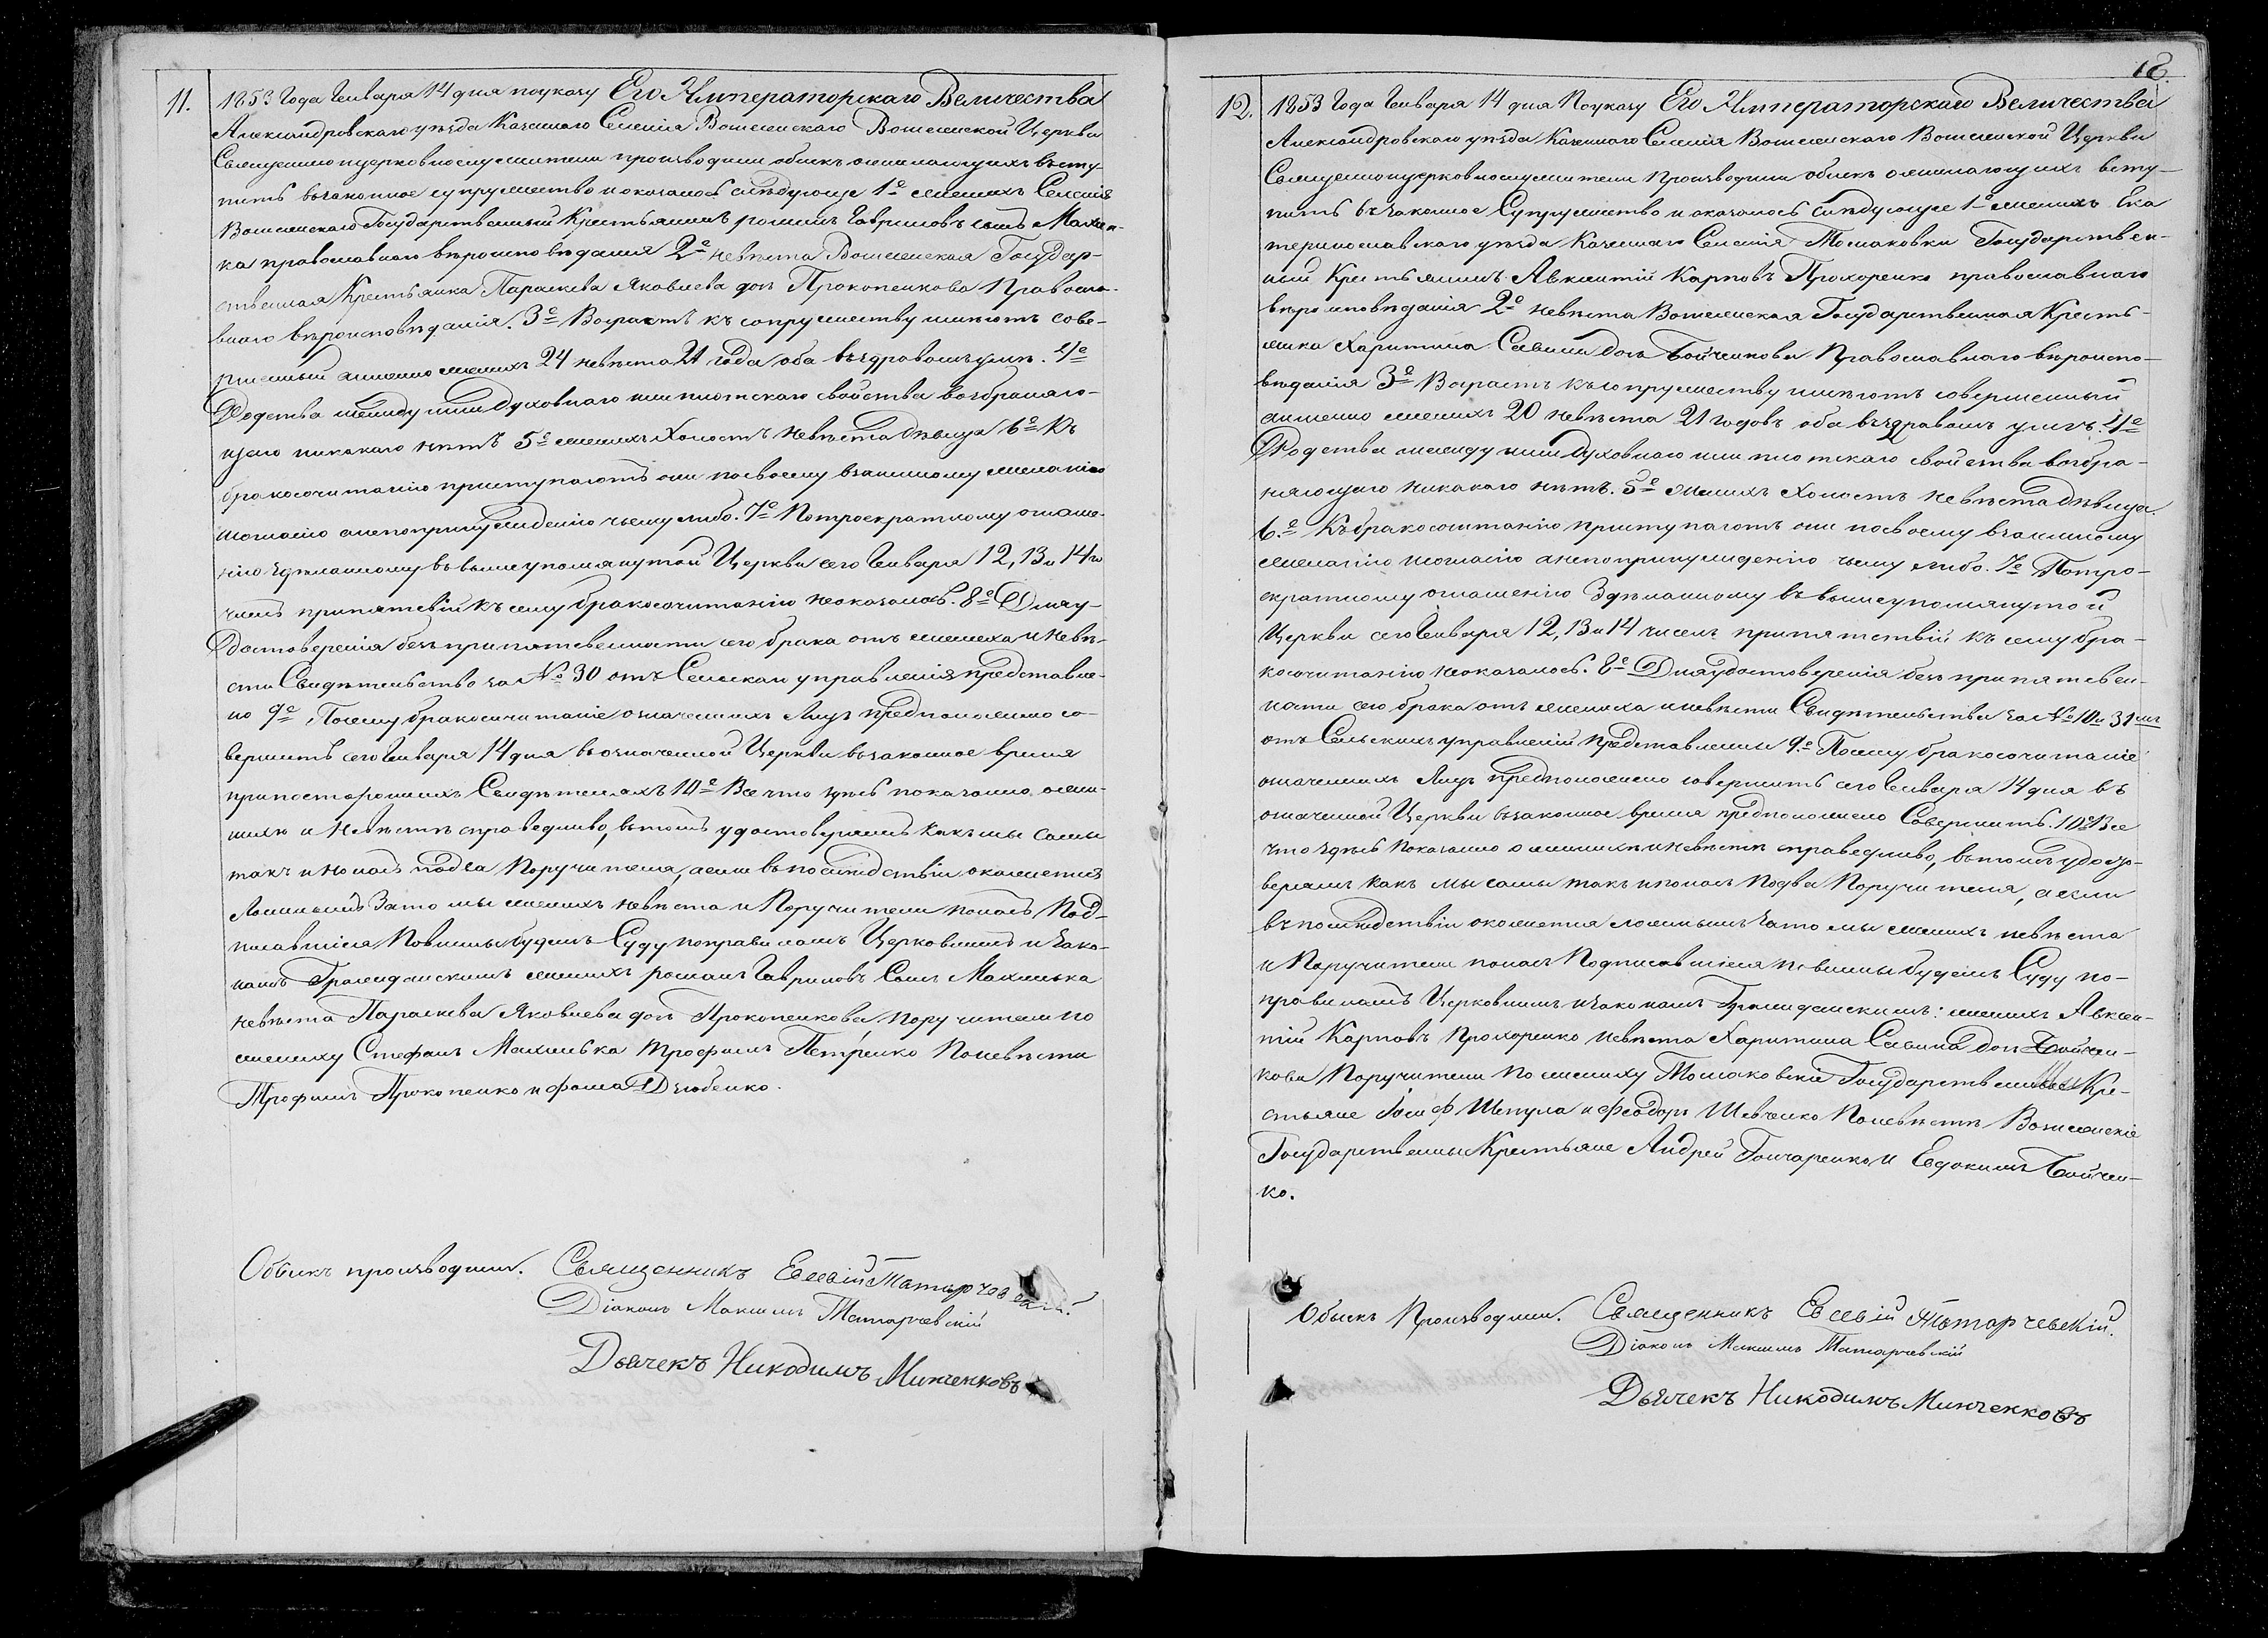 11. 1853 Года Генваря 14 дня по указу Его Императорскаго Величества
Александровскаго уезда Казеннаго Селенія Вознесенскаго Вознесенской Церкви
Священноицерковнослужители производили обыскъ о желающихъ всту-
пить взаконное супружество и оказалось следующе 1е женихъ Селенія
Вознесенскаго Государственный Крестьянинъ романъ Гавриловъ сынъ Махинь-
ка православнаго вероисповеданія 2е невеста Вознесенская Государ-
ственная Крестьянка Параскева Яковлева доч Прокопенкова Правосла-
внаго вероисповеданія. 3е Возрастъ къ супружеству имеютъ сове-
ршенный а именно женихъ 24 невеста 21 года оба въ здравомъ уме. 4е
Родства между ими Духовнаго или плотскаго свойства возбраняю-
щаго никакаго нетъ 5е женихъ Холостъ невеста девица 6е Къ
бракосочитанію приступаютъ они посвоему взаимному желанію
исогласію анепопринужденію чьему либо. 7е Потроекратному оглаше-
нію зделанному въ вышеупомянутой Церкви сего Генваря 12, 13 и 14го
числъ припятствій къ сему бракосочитанію неоказалось. 8е Для у-
достоверенія безпрепятственности сего брака отъ жениха и невѣ-
сти Свидетельство за № 30 отъ Сельскаго управленія представле-
но 9е Посему бракосочитаніе означенныхъ Лицъ предположено со-
вершить сего Генваря 14 дня въ означенной Церкви взаконное время
припостороннихъ Свидетеляхъ 10е Все что здесь показанно о жени-
михе и Невесте справедливо, в томъ удостоверяемъ какъ мы самы
такъ и по насъ подва Поручителя, аесли въ последствіи окажется
Ложнымъ Зато мы женихъ невеста и Поручители понасъ Под-
писавшіеся Повинны будемъ Суду поправиламъ Церковнымъ и Зако-
намъ Гражданскимъ женихъ романъ Гавриловъ Сынъ Махинька
Невеста Параскева Яковлева доч Прокопенкова поручители по
жениху Стефанъ Махинька Трофимъ Петренко Поневести
Трофимъ Прокопенко и фома Дзюбенко.
Обыскъ производили. Священникъ Евсевій Татарчевскій.
Діаконъ Максимъ Татарчевскій
Дьячекъ Никодимъ Минченковъ
12. 1853 Года Генваря 14 дня По указу Его Императорскаго Величества
Александровскаго уезда Казеннаго Селенія Вознесенскаго Вознесенской Церкви
Священноицерковнослужители Производили обыскъ о желающихъ всту-
пить въ законное Супружество и оказалось следующее 1е женихъ Ека
теринославскаго уезда Казеннаго Селенія Томаковки Государствен-
ный Крестьянинъ Авксентій Карповъ Прохоренко православнаго
вероисповеданія 2е невеста Вознесенская Государственная Кресть-
янка Харитина Савина доч Бойченкова Православнаго вероиспо-
веданія 3е Возрастъ къ супружеству имеютъ совершенный
а именно женихъ 20 невеста 21 годовъ оба въ здравомъ уме. 4е
Родства между ими Духовнаго или плотскаго свойства возбра-
няющаго никакаго нетъ. 5е женихъ Холостъ невеста девица.
6е Къ бракосочитанію приступаютъ они посвоему взаимному
желанію исогласію анепопринужденію чьему либо. 7е Потро-
екратному оглашенію Зделанному въ вышеупомянутой
Церкви сего Генваря 12, 13 и 14 числъ припятствій къ сему бра-
косочитанію неоказалось. 8е Для удостоверенія безпрепятствен-
ности сего брака отъ жениха иневести Свидетельства за № 10 и 31мъ
отъ Сельскихъ управленій представлены 9е Посему бракосочитаніе
означенныхъ Лицъ предположено совершить сего Генваря 14 дня въ
означенной Церкви взаконное время предположено Совершить. 10е Все
что здесь Показанно о женихе и невесте справедливо, в томъ удосто-
веряемъ какъ мы самы такъ и понасъ подва Поручителя, а если
въ последствіи окажется ложнымъ зато мы женихъ невеста
и Поручители понасъ Подписавшіеся повинны будемъ Суду по-
правиламъ Церковнымъ изаконамъ Гражданскимъ: женихъ Авксен-
тій Карповъ Прохоренко невеста Харитина Савина доч Бойчен-
кова Поручители По жениху Томаковскіе Государственные Кре-
стьяне Іосиф Шепула и феодоръ Шевченко Поневесте Вознесенскіе
Государственны Крестьяне Андрей Гончаренко и Евдокимъ Бойчен-
ко.
Обыскъ Производили. Священникъ Евсевій Татарчевскій.
Діаконъ Максимъ Татарчевскій
Дьячекъ Никодимъ Минченковъ